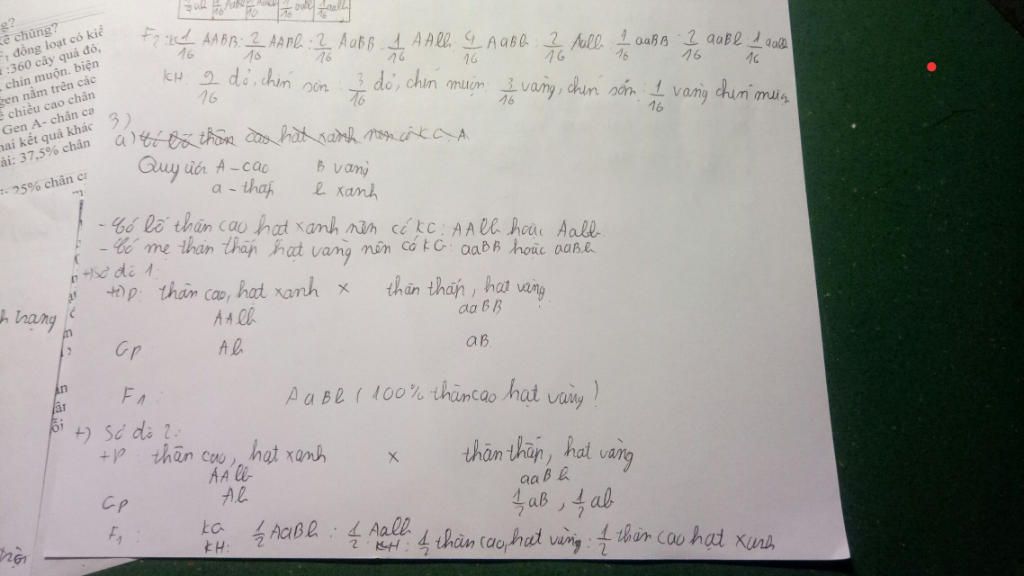 F2: KG 1/16 AABB : 2/16 AABb : 2/16 AaBB : 1/16 AAbb : 4/16 AaBb : 2/16 Aabb : 1/16 aaBB : 2/16 aaBb : 1/16 aabb
KH: 9/16 đỏ, chín sớm : 3/16 đỏ, chín muộn : 3/16 vàng, chín sớm : 1/16 vàng chín muộn
3)
a) bố lõ thân cao hạt xanh nên có KG A
Quy ước A - cao B vàng
a - thấp b xanh
- Có bố thân cao hạt xanh nên có KG: AAbb hoặc Aabb
- Có mẹ thân thấp hạt vàng nên có KG: aaBB hoặc aaBb
+) Sơ đồ 1:
+) P: thân cao, hạt xanh x thân thấp, hạt vàng
AAbb aaBB
Gp Ab aB
F1: AaBb (100% thân cao hạt vàng)
+) Sơ đồ 2:
+P: thân cao, hạt xanh x thân thấp, hạt vàng
AAbb aaBb
Gp Ab 1/2 aB, 1/2 ab
F1: KG 1/2 AaBb : 1/2 Aabb
KH: KH: 1/2 thân cao, hạt vàng : 1/2 thân cao hạt xanh
g?
F1 đồng loạt có kiể
:360 cây quả đỏ,
chín muộn. biện
gen nằm trên các
chiều cao chân
Gen A- chân ca
hai kết quả khác
ải: 37,5% chân
25% chân c
h trạng